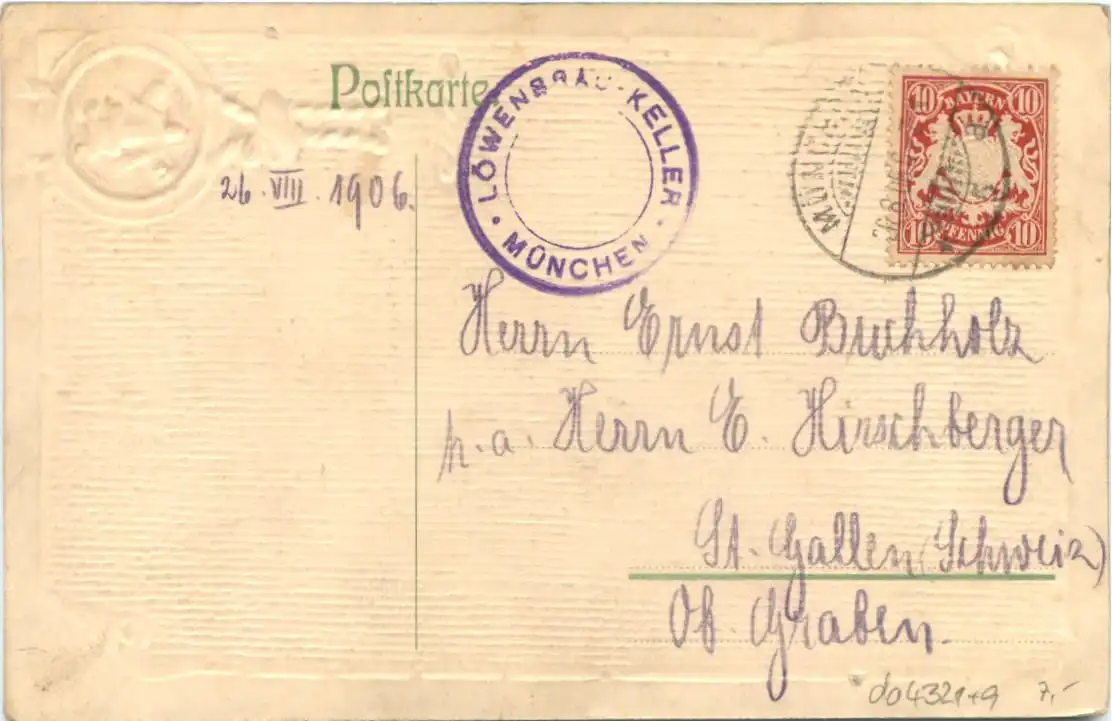 Postkarte
26. VIII. 1906.
LÖWENBRÄU-KELLER
MÜNCHEN
BAYERN
10 10
10 PFENNIG 10
Herrn Ernst Buchholz
p.a. Herrn E. Hirschberger
St. Gallen (Schweiz)
Ob. Graben.
do4321+9 7,-